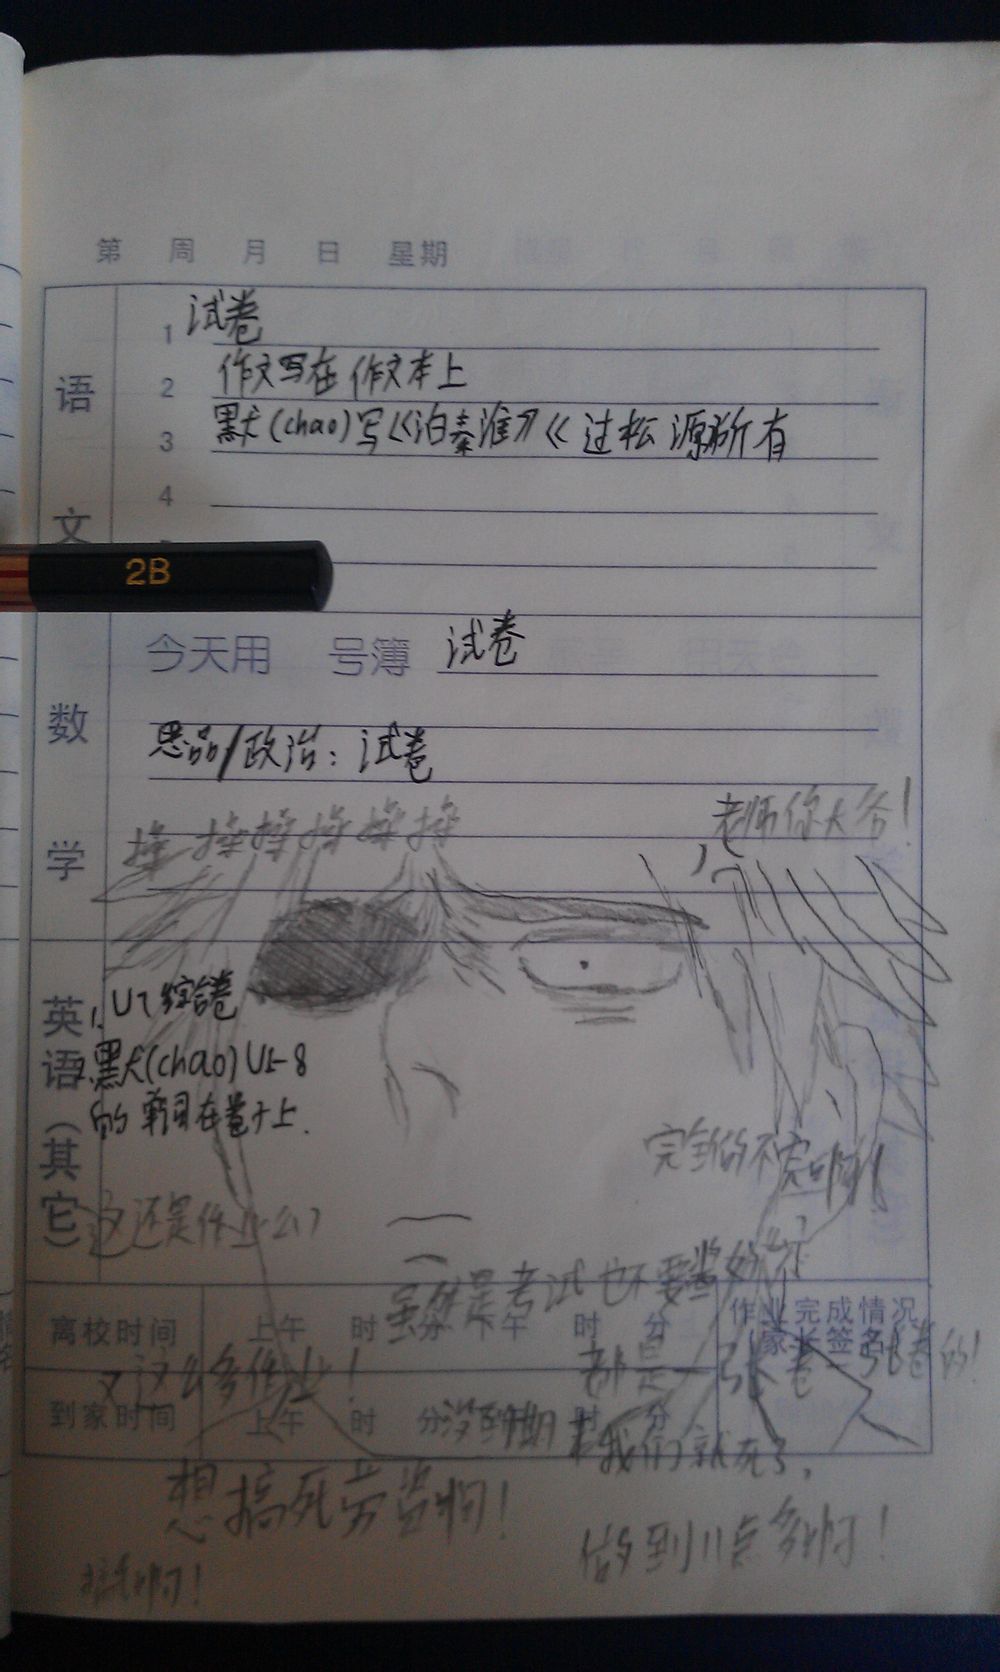 第 周 月 日 星期
语文
1 试卷
2 作文写在作文本上
3 默(chao)写《泊秦淮》《过松源
4
2B
数学
今天用 号簿 试卷
思品/政治：试卷
操操操操操操
老师你大爷！
英语（其它）
1. U7综合卷
2.默(chao)U5-8
的 词在卷子上.
完全做不完啊！
这还是作业么？
虽然是考试也不要
离校时间 上午 时 分 下午 时 分
作业完成情况
（家长签名）
这么多作业！
都是一张卷一张卷的！
到家时间 上午 时 分 时 分
没到期末我们就死了，
想搞死劳资啊！
做到11点多啊！
啊！